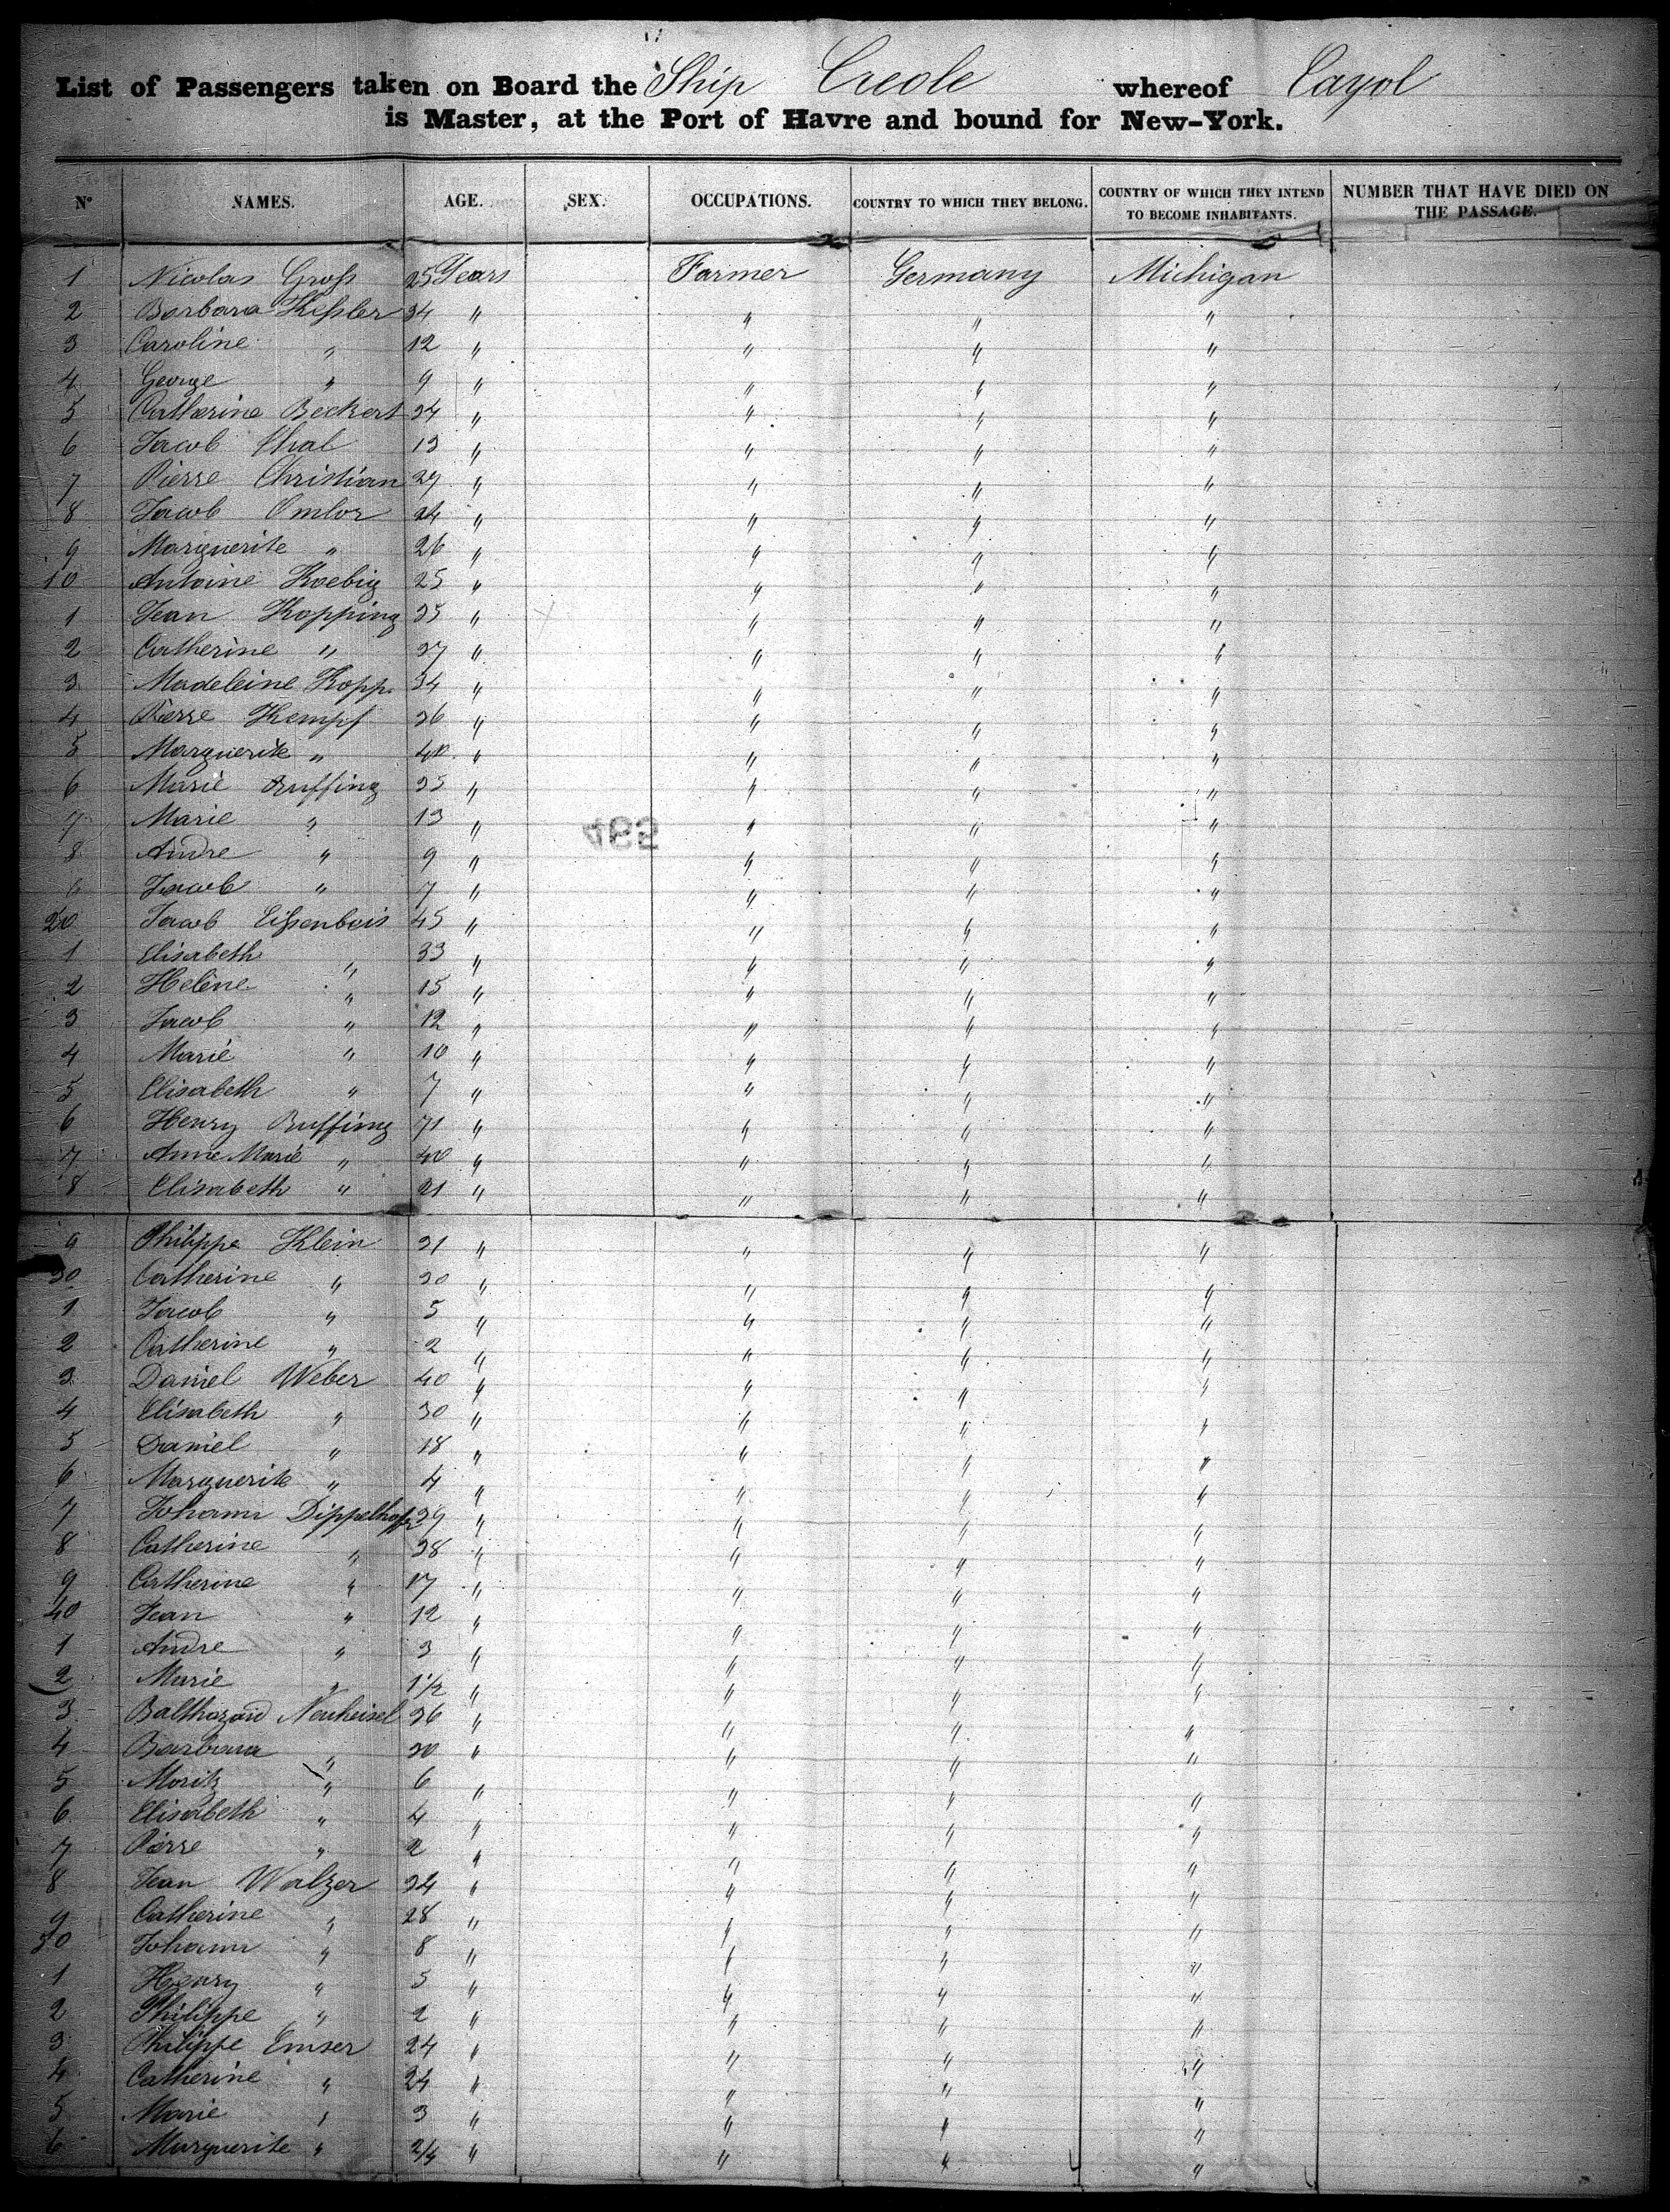 List of Passengers taken on Board the Ship Creole whereof Cayol
is Master, at the Port of Havre and bound for New-York.
N° NAMES. AGE. SEX. OCCUPATIONS. COUNTRY TO WHICH THEY BELONG. COUNTRY OF WHICH THEY INTEND TO BECOME INHABITANTS. NUMBER THAT HAVE DIED ON THE PASSAGE.
1 Nicolas Groß 25 Years Farmer Germany Michigan
2 Barbara Keßler 34 " " " "
3 Caroline " 12 " " " "
4 George " 9 " " " "
5 Catherine Beckert 24 " " " "
6 Jacob 13 " " " "
7 Pierre Christian 29 " " " "
8 Jacob Omlor 24 " " " "
9 Marguerite " 26 " " " "
10 Antoine Koebig 25 " " " "
1 Jean Kopping 35 " " " "
2 Catherine " 37 " " " "
3 Madeleine Kopp. 34 " " " "
4 Pierre Kempf 36 " " " "
5 Marguerite " 40 " " " "
6 Marie Ruffing 35 " " " "
7 Marie " 13 " " " "
8 Andre " 9 " " " "
9 Jacob " 7 " " " "
20 Jacob Eißenbeis 45 " " " "
1 Elisabeth " 33 " " " "
2 Helène " 15 " " " "
3 Jacob " 12 " " " "
4 Marie " 10 " " " "
5 Elisabeth " 7 " " " "
6 Henry Ruffing 71 " " " "
7 Anne Marie " 40 " " " "
8 Elisabeth " 21 " " " "
9 Philippe Klein 31 " " " "
30 Catherine " 30 " " " "
1 Jacob " 5 " " " "
2 Catherine " 2 " " " "
3 Daniel Weber 40 " " " "
4 Elisabeth " 30 " " " "
5 Daniel " 18 " " " "
6 Marguerite " 4 " " " "
7 Johann Dippelhofer 39 " " " "
8 Catherine " 38 " " " "
9 Catherine " 17 " " " "
40 Jean " 12 " " " "
1 Andre " 3 " " " "
2 Marie " 1½ " " " "
3 Balthazard Neuheisel 36 " " " "
4 Barbara " 30 " " " "
5 Moritz " 6 " " " "
6 Elisabeth " 4 " " " "
7 Pierre " 2 " " " "
8 Jean Walzer 34 " " " "
9 Catherine " 28 " " " "
50 Johann " 8 " " " "
1 Henry " 5 " " " "
2 Philippe " 2 " " " "
3 Philippe Emser 24 " " " "
4 Catherine " 24 " " " "
5 Marie " 3 " " " "
6 Marguerite " 2/4 " " " "